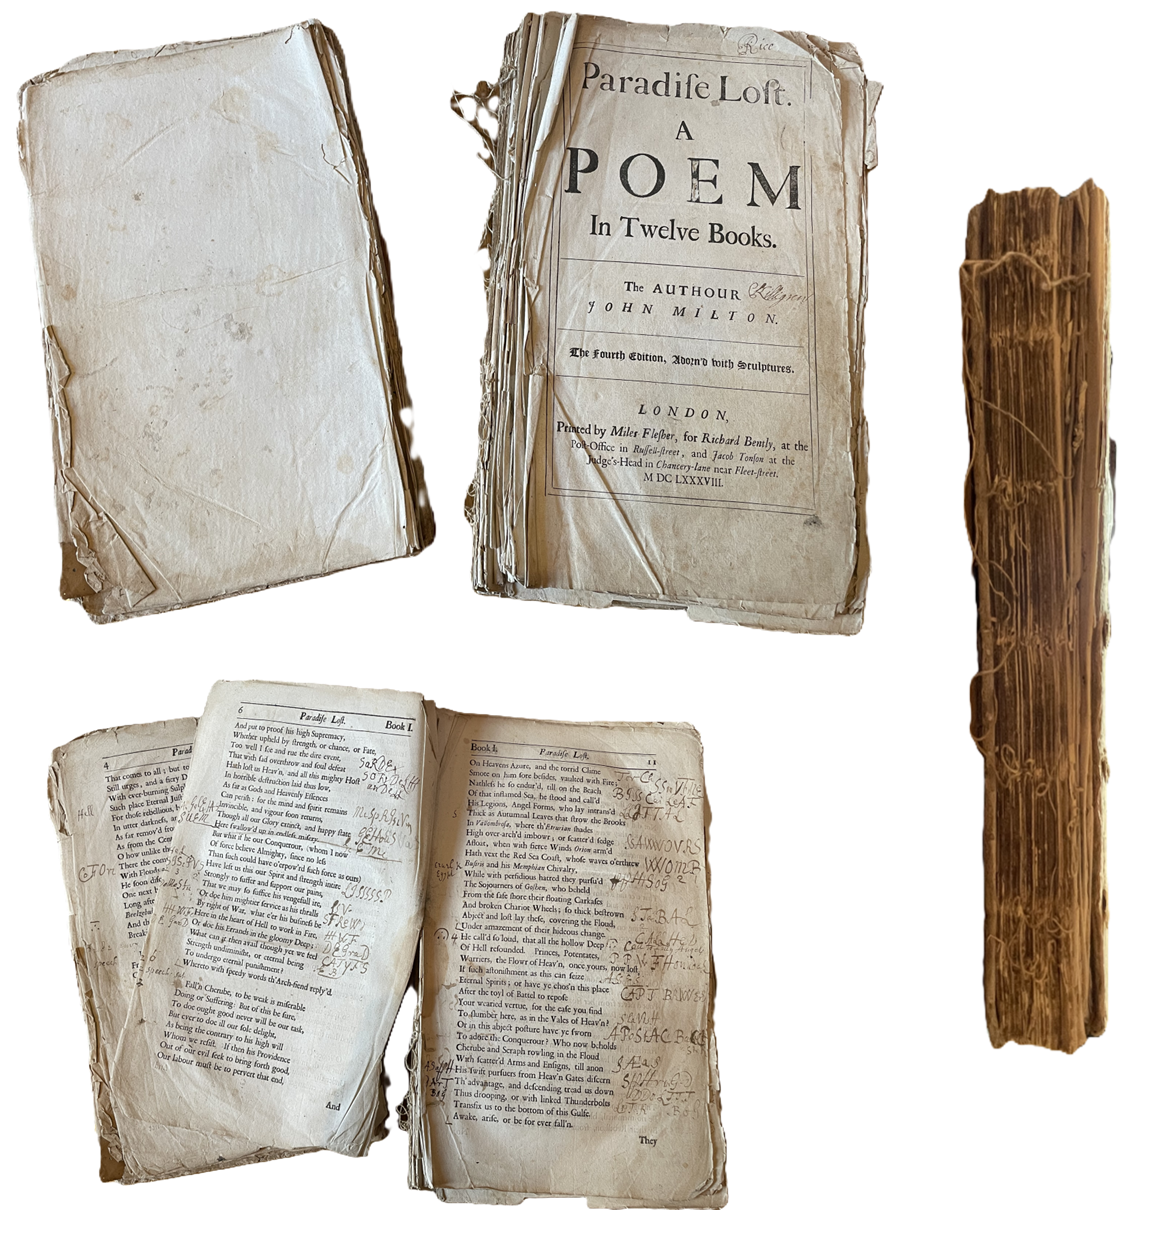 Rice
Paradiſe Loſt.
A
POEM
In Twelve Books.
The AUTHOUR
JOHN MILTON.
The Fourth Edition, Adorn'd with Sculptures.
LONDON,
Printed by Miles Fleſher, for Richard Bently, at the
Poſt-Office in Ruſſell-ſtreet, and Jacob Tonſon at the
Judge's-Head in Chancery-lane near Fleet-ſtreet.
M DC LXXXVIII.
4 Parad
That comes to all; but to
Still urges, and a fiery D
With ever-burning Sulp
Such place Eternal Juſt
For thoſe rebellious,
In utter darkneſs,
As far remov'd from
As from the Cen
O how unlike th
There the com
With Floods a
He ſoon diſc
One next h
Long after
Beelzebub
And th
Break
Hell
6 Paradiſe Loſt. Book I.
And put to proof his high Supremacy,
Whether upheld by ſtrength, or chance, or Fate,
Too well I ſee and rue the dire event,
That with ſad overthrow and foul defeat
Hath loſt us Heav'n, and all this mighty Hoſt
In horrible deſtruction laid thus low,
As far as Gods and Heavenly Eſſences
Can periſh: for the mind and ſpirit remains
Invincible, and vigour ſoon returns,
Though all our Glory extinct, and happy ſtate
Here ſwallow'd up in endleſs miſery.
But what if he our Conquerour, (whom I now
Of force believe Almighty, ſince no leſs
Than ſuch could have o'erpow'rd ſuch force as ours)
Have left us this our Spirit and ſtrength intire
Strongly to ſuffer and ſupport our pains,
That we may ſo ſuffice his vengeful ire,
Or do him mightier ſervice as his thralls
By right of War, what e'er his buſineſs be
Here in the heart of Hell to work in Fire,
Or do his Errands in the gloomy Deep;
What can it then avail though yet we feel
Strength undiminiſht, or eternal being
To undergo eternal puniſhment?
Whereto with ſpeedy words th'Arch-fiend reply'd.
Fall'n Cherube, to be weak is miſerable
Doing or Suffering: But of this be ſure,
To doe ought good never will be our task,
But ever to doe ill our ſole delight,
As being the contrary to his high will
Whom we reſiſt. If then his Providence
Out of our evil ſeek to bring forth good,
Our labour muſt be to pervert that end,
And
Book I. Paradiſe Loſt. 11
On Heavens Azure, and the torrid Clime
Smote on him ſore beſides, vaulted with Fire;
Nathleſs he ſo endur'd, till on the Beach
Of that inflamed Sea, he ſtood and call'd
His Legions, Angel Forms, who lay intrans'd
Thick as Autumnal Leaves that ſtrow the Brooks
In Vallombroſa, where th'Etrurian ſhades
High over-arch'd imbowr; or ſcatter'd ſedge
Afloat, when with fierce Winds Orion arm'd
Hath vext the Red Sea Coaſt, whoſe waves o'erthrew
Buſiris and his Memphian Chivalry,
While with perfidious hatred they purſu'd
The Sojourners of Goſhen, who beheld
From the ſafe ſhore their floating Carkaſes
And broken Chariot Wheels; ſo thick beſtrown
Abject and loſt lay theſe, covering the Flood,
Under amazement of their hideous change.
He call'd ſo loud, that all the hollow Deep
Of Hell reſounded. Princes, Potentates,
Warriers, the Flowr of Heav'n, once yours, now loſt,
If ſuch aſtoniſhment as this can ſeize
Eternal Spirits; or have ye choſ'n this place
After the toyl of Battel to repoſe
Your wearied vertue, for the eaſe you find
To ſlumber here, as in the Vales of Heav'n?
Or in this abject poſture have ye ſworn
To adore the Conquerour? Who now beholds
Cherube and Seraph rowling in the Flood
With ſcatter'd Arms and Enſigns, till anon
His ſwift purſuers from Heav'n Gates diſcern
Th' advantage, and deſcending tread us down
Thus drooping, or with linked Thunderbolts
Transfix us to the bottom of this Gulfe.
Awake, ariſe, or be for ever fall'n.
They